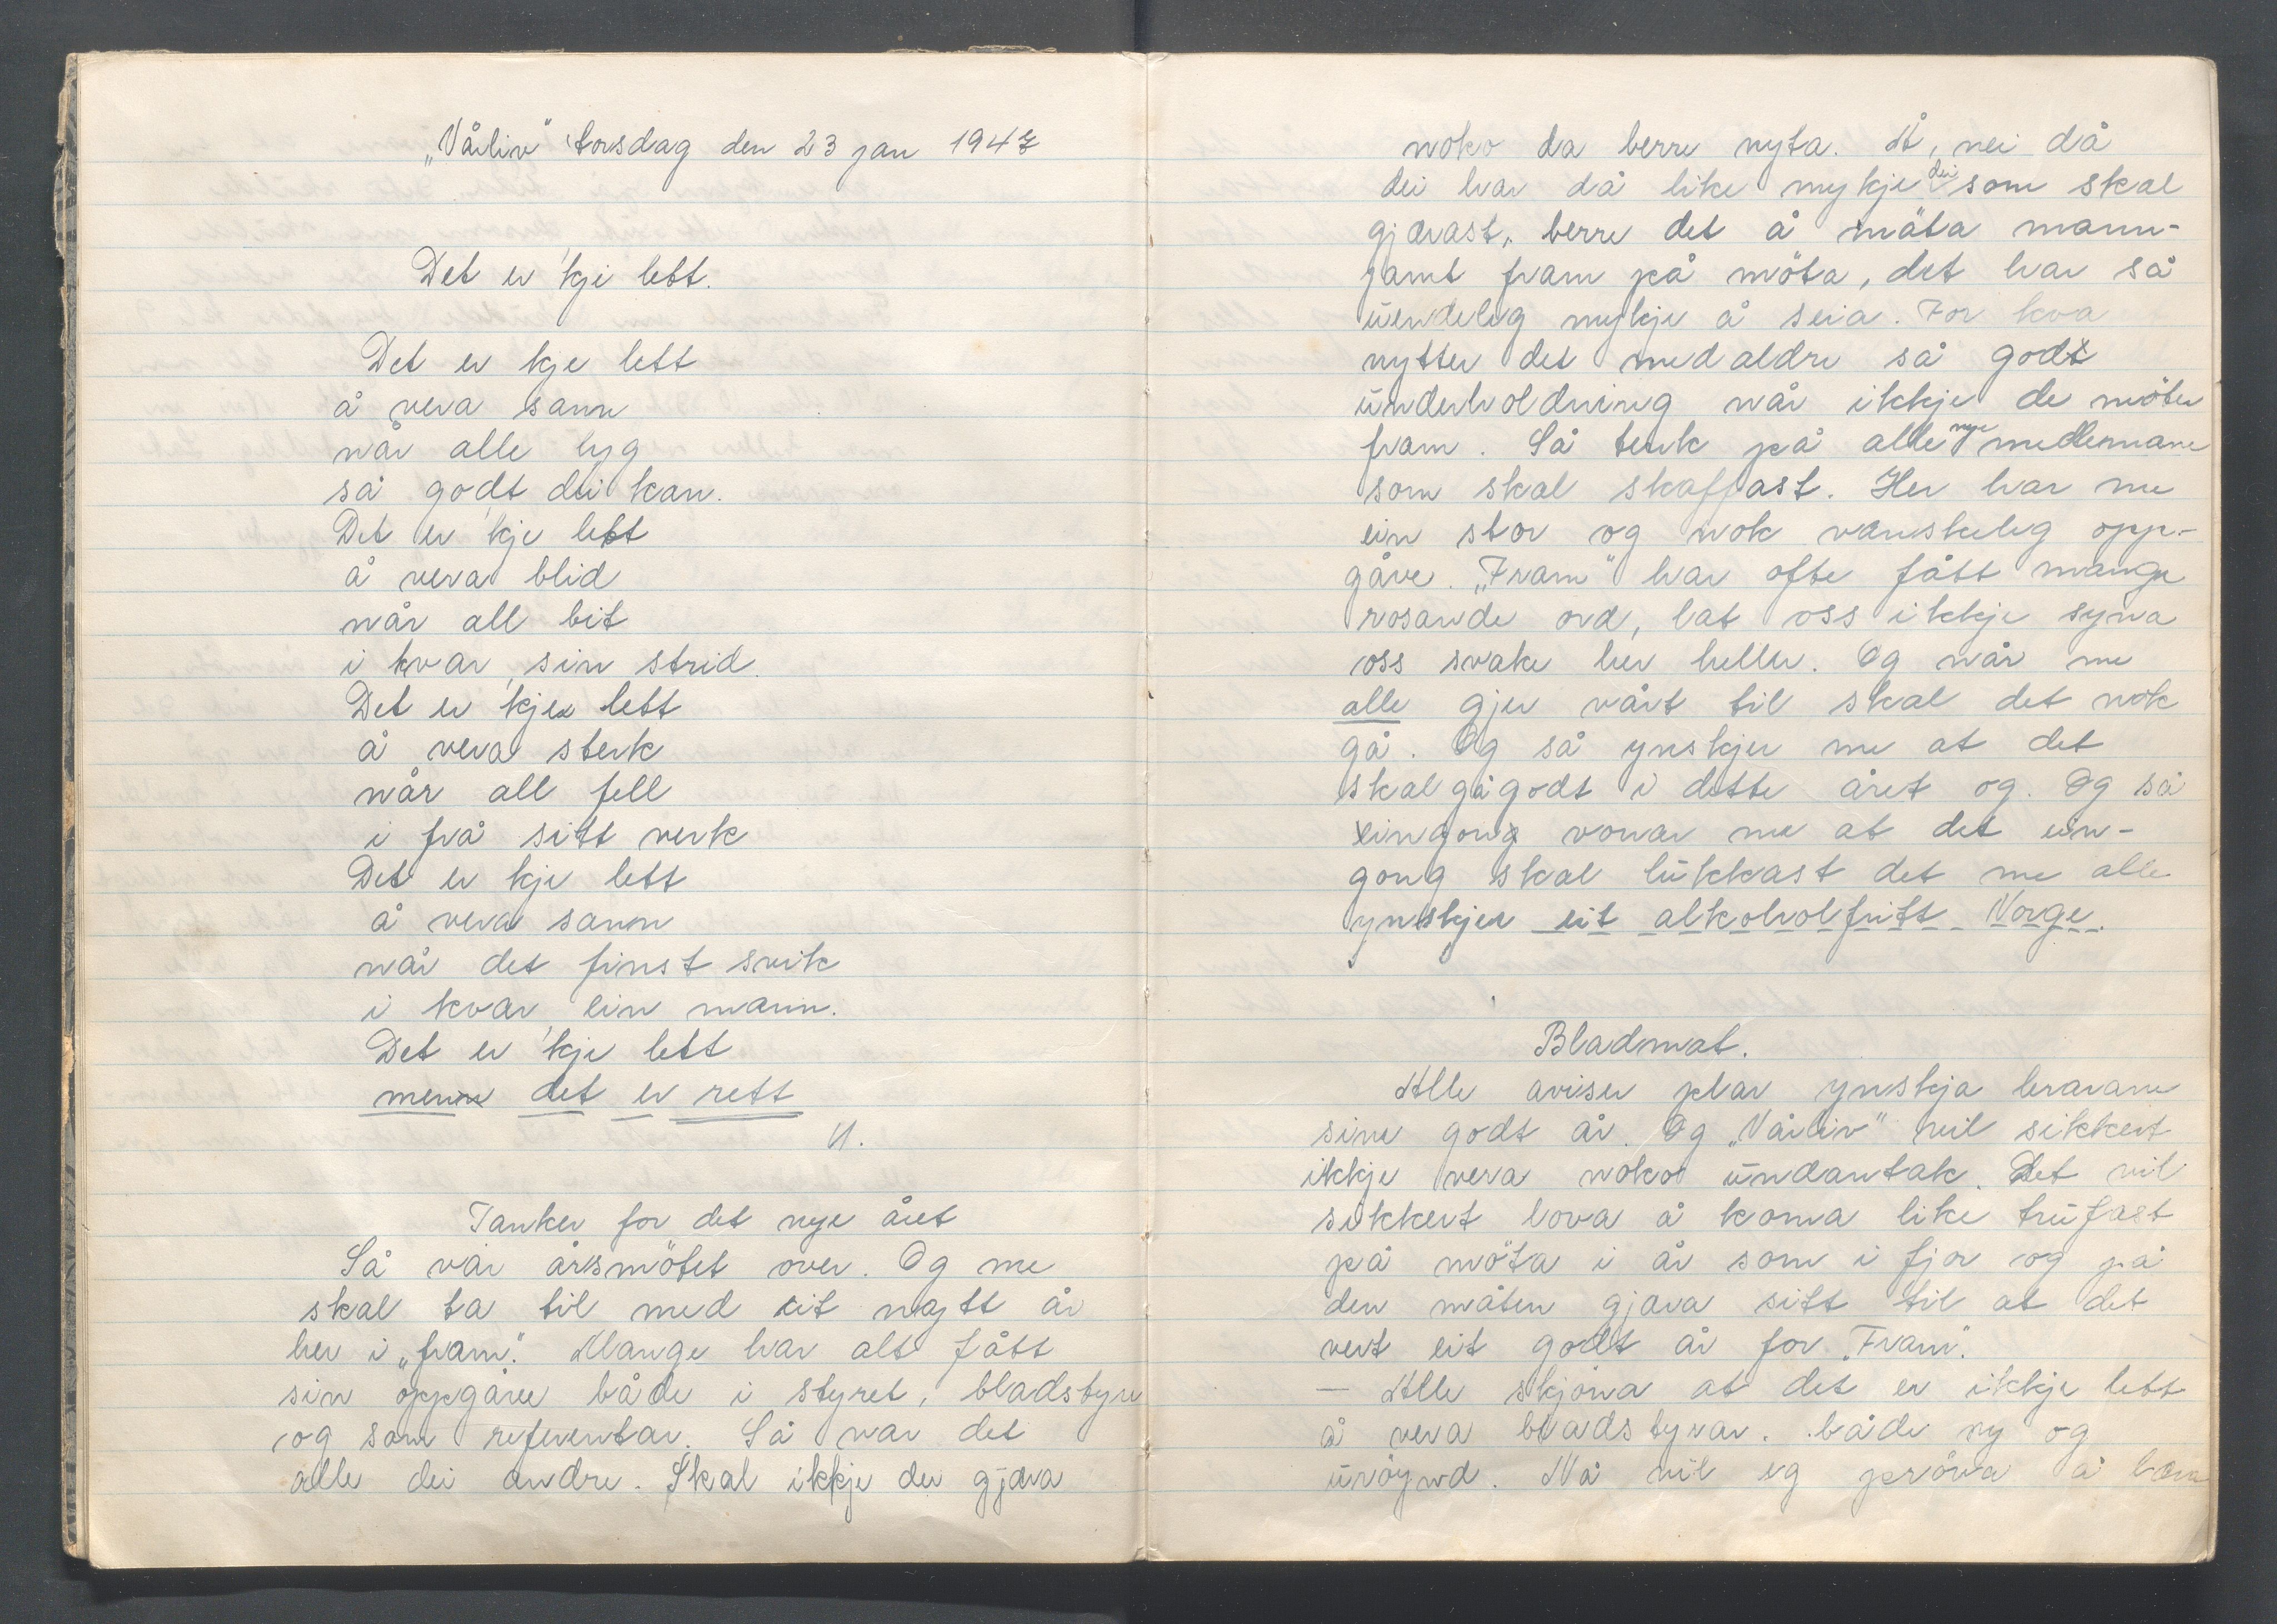 „Vårliv" torsdag den 23 jan 1947
Det er 'kje lett.
Det er kje lett
å vera sann
når alle lyg
så godt dei kan.
Det er 'kje lett
å vera blid
når all bit
i kvar sin strid.
Det er 'kje lett
å vera sterk
når all fell
i frå sitt verk
Det er kje lett
å vera sann
når det finst svik
i kvar ein mann.
Det er 'kje lett
men det er rett
U.
Tanker for det nye året
Så var årsmötet over. Og me
skal ta til med eit nytt år
her i „fram". Mange har alt fått
sin oppgåve både i styret, bladstyre
og som referentar. Så var det
alle dei andre. Skal ikkje dei gjæra
noko da berre nyta. Å, nei då
dei har då like mykje dei som skal
gjærast, berre det å mäta mann-
jamt fram på möta, det har så
uendeleg mykje å seia. For kva
nytter det med aldre så godt
underholdning når ikkje de möter
fram. Så tenk på alle nye medlemane
som skal skaffast. Her har me
ein stor og nok vanskeleg opp-
gåve. „Fram" har ofte fått mange
rosande ord, lat oss ikkje syna
oss svake her heller. Og når me
alle gjer vårt til skal det nok
gå. Og så ynskjer me at det
skal gå godt i dette året og. Og så
eingong vonar me at det ein-
gong skal lukkast det me alle
ynskjer eit alkoholfritt Norge.
Bladmat.
Alle aviser plar ynskja lesarane
sine godt år. Og „Vårliv" vil sikkert
ikkje vera noko undantak. Det vil
sikkert lova å koma like trufast
på möta i år som i fjor og på
den måten gjæra sitt til at det
vert eit godt år for „Fram".
— Alle skjöna at det er ikkje lett
å vera bladstyrar. både ny og
uröynd. Nå vil eg pröva å